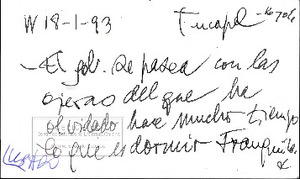 W 18-1-93
Tucapel
— El gob. se pasea con las
ojeras del que ha
olvidado hace mucho tiempo
lo que es dormir tranquilo.
USADO